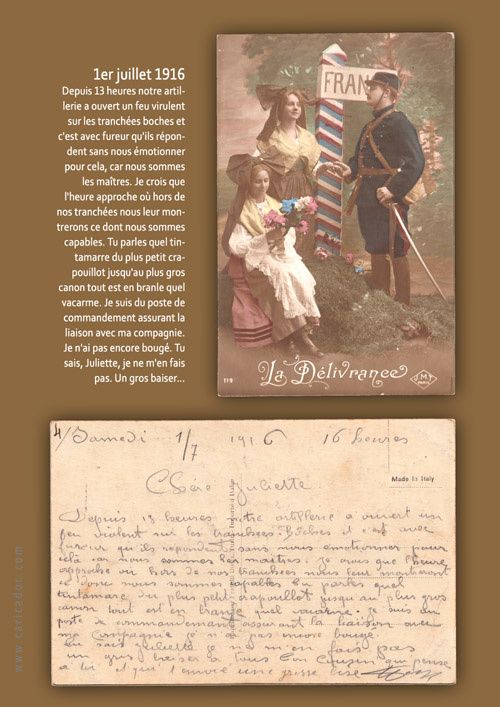 1er juillet 1916
Depuis 13 heures notre artil-
lerie a ouvert un feu virulent
sur les tranchées boches et
c'est avec fureur qu'ils répon-
dent sans nous émotionner
pour cela, car nous sommes
les maîtres. Je crois que
l'heure approche où hors de
nos tranchées nous leur mon-
trerons ce dont nous sommes
capables. Tu parles quel tin-
tamarre du plus petit cra-
pouillot jusqu'au plus gros
canon tout est en branle quel
vacarme. Je suis du poste de
commandement assurant la
liaison avec ma compagnie.
Je n'ai pas encore bougé. Tu
sais, Juliette, je ne m'en fais
pas. Un gros baiser...
FRAN
La Délivrance
119
J.M.T
PARIS
4/ Samedi 1/7 1916 16 heures
Made in Italy
Chère Juliette
Depuis 13 heures notre artillerie a ouvert un
feu violent sur les tranchées Boches et c'est avec
fureur qu'ils répondent sans nous émotionner pour
cela car nous sommes les maîtres. Je crois que l'heure
approche où hors de nos tranchées nous leur montrerons
ce dont nous sommes capables tu parles quel
tintamarre du plus petit crapouillot jusqu'au plus gros
canon tout est en branle quel vacarme. Je suis au
poste de commandement assurant la liaison avec
ma Compagnie je n'ai pas encore bougé.
Tu sais Juliette je ne m'en fais pas
un gros baiser à tous ton Cousin qui pense
à toi et qui t'envoie une grosse bise
www.caricadoc.com